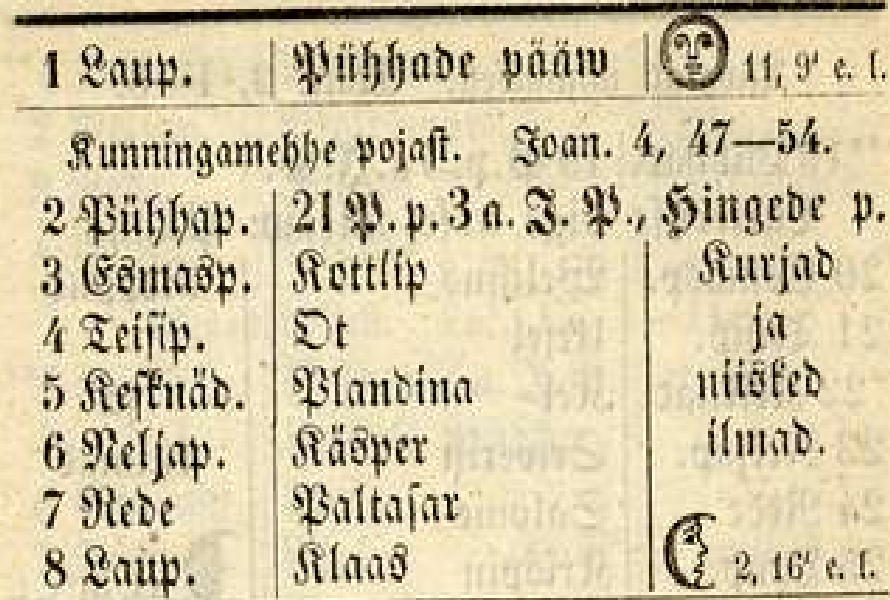 1 Laup. Pühhade pääw 11, 9' e. l.
Kunningamehhe pojast. Joan. 4, 47—54.
2 Pühhap. 21 P. p. 3 a. J. P., Hingede p.
3 Esmasp. Kottlip Kurjad
4 Teisip. Ot ja
5 Kesknäd. Plandina niisked
6 Neljap. Käsper ilmad.
7 Rede Paltasar
8 Laup. Klaas 2, 16' e. l.